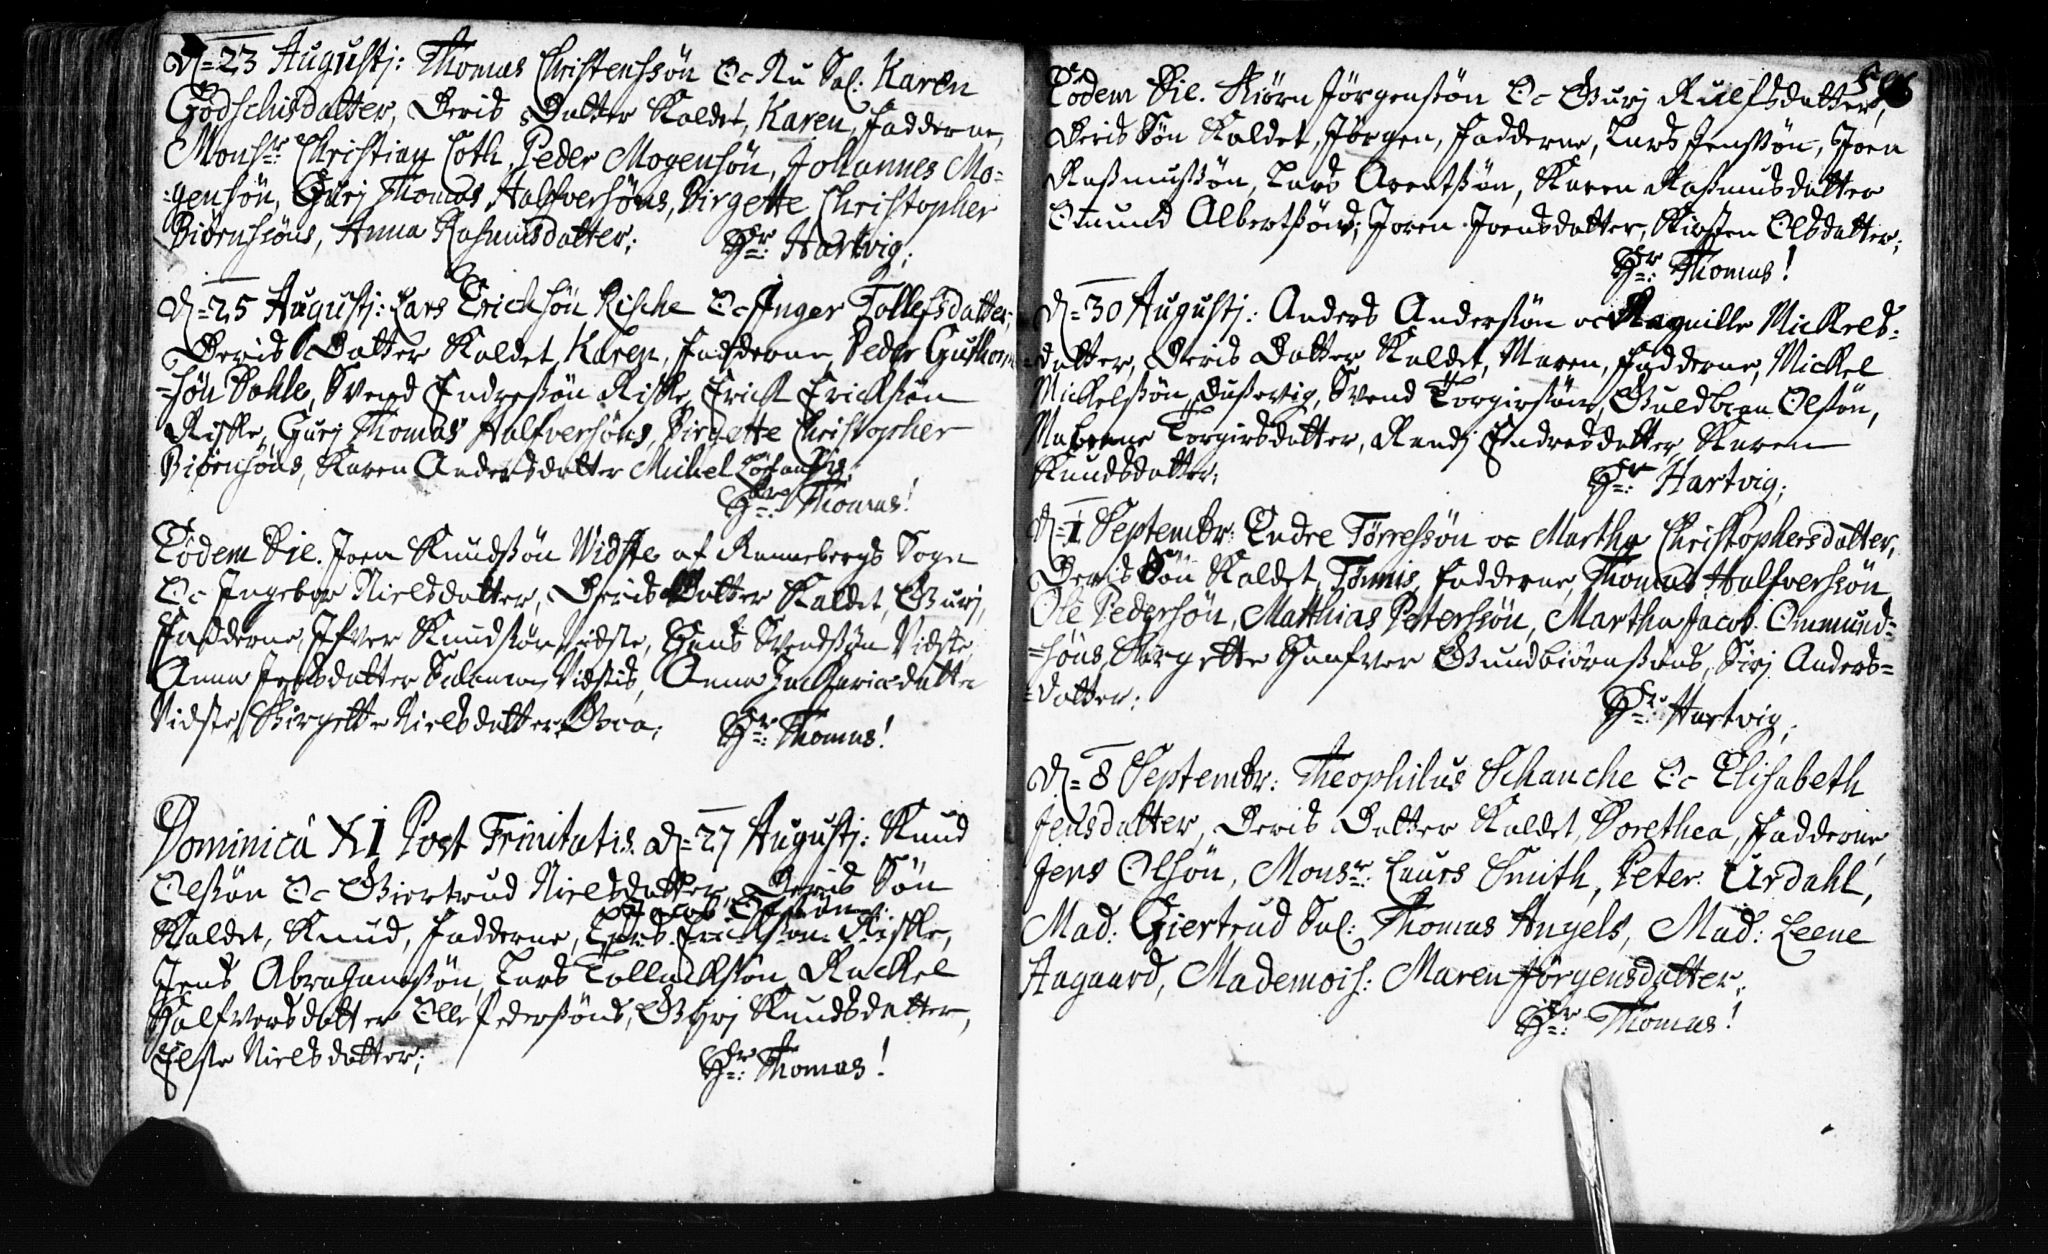 D=23 Augustj: Thomas Christenssön Oc Nu Sal: Karen
Godschisdatter, Deris Datter Kaldet, Karen, Fadderne,
Monsr: Christian Coth, Peder Mogensön, Johannes Mo-
-gensön, Gurj Thomas Halfversöns, Birgette Christopher
Biörnssöns, Anna Rasmusdatter; Hr: Hartvig;
D=25 Augustj: Lars Ericksön Rische Oc Inger Tollefsdatter,
Deris Datter Kaldet, Karen, Fadderne, Peder Guthorm
=sön Bahle, Svend Endresön Riske, Erick Ericksön
Riske, Gurj Thomas Halfversöns, Birgette Christopher
Biörnsöns, Karen Andersdatter Michel
Hr: Thomas!
Eodem Die. Joen Knudsön Vidste af Rennebergs Sogn
Oc Ingebor Nielsdatter, Deris Datter Kaldet, Gurj,
Fadderne, Ifver Knudsön Vidste, Hans Svendsön Vidste,
Anna Jensdatter Vidstes, Anna Zachariædatter
Vidste, Birgette Nielsdatter Hr: Thomas!
Dominicâ XI Post Trinitatis. D=27 Augustj: Knud
Olsön Oc Giertrud Nielsdatter, Deris Sön
Jacob
Kaldet, Knud, Fadderne, Lars Ericksön Riske,
Jens Abrahamsön, Lars Tollacksön, Rackel
Halfversdatter Olle Pedersöns, Gurj Knudsdatter,
Else Nielsdatter; Hr: Thomas!
Eodem Die. Kiörn Jörgensön Oc Gurj Rulfsdatter,
Deris Sön Kaldet, Jörgen, Fadderne, Lars Jenssön, Joen
Rasmussön, Lars Arentsön, Karen Rasmusdatter
Omund Albertsöns, Joren Joensdatter, Kirsten Olsdatter;
Hr: Thomas!
D=30 Augustj: Anders Andersön oc Ragnille Mickels-
datter, Deris Datter Kaldet, Maren, Fadderne, Mickel
Mickelssön Dusevig, Svend Torgirsön, Guldbran Olsön,
Torgirsdatter, Randj Endresdatter, Karen
Knudsdatter; Hr: Hartvig;
D=1 Septembr: Endre Törressön oc Martha Christophersdatter,
Deris Sön Kaldet, Tönnis, Fadderne, Thomas Halfverssön
Ole Pedersön, Matthias Peterssön, Martha Jacob Ommund=
=söns, Birgette Haafver Gundbiörnsöns, Sirj Anders=
=datter; Hr: Hartvig;
D=8 Septembr: Theophilus Schanche Oc Elisabeth
Jensdatter, Deris Datter Kaldet, Dorethea, Fadderne,
Jens Olsön, Monsr: Laurs Smith, Peter Urdahl,
Mad: Giertrud Sal: Thomas Angels, Mad: Leene
Aagaard, Mademois: Maren Jörgensdatter;
Hr: Thomas!